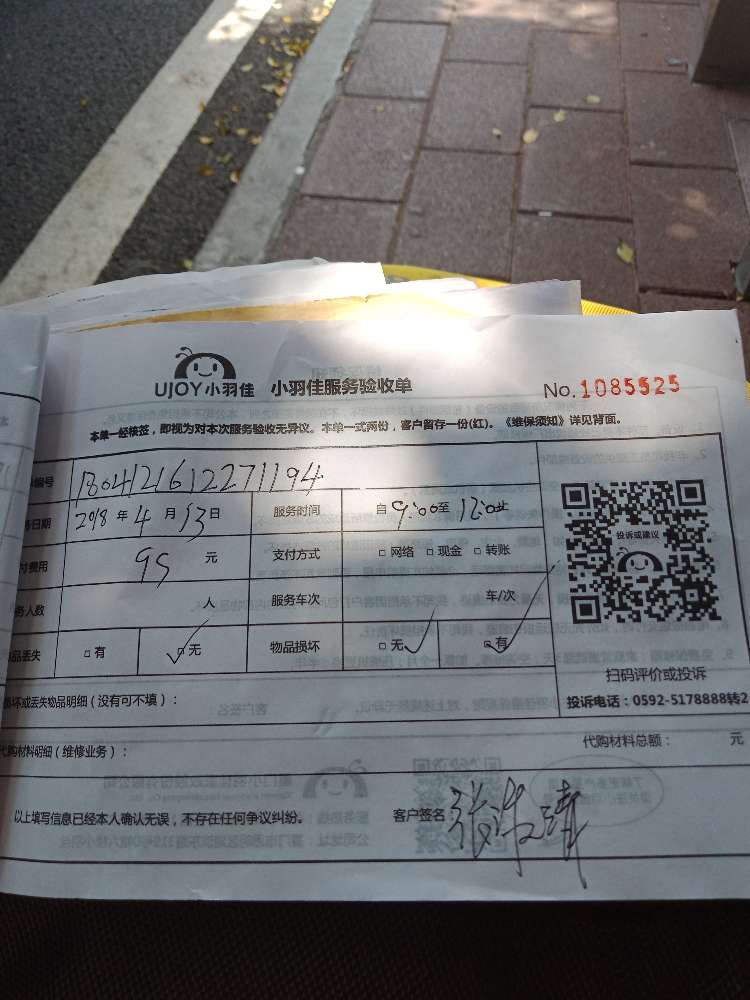 UJOY小羽佳 小羽佳服务验收单 No.1085525
本单一经核签，即视为对本次服务验收无异议。本单一式两份，客户留存一份(红)。《维保须知》详见背面。
编号 1804121612271194
日期 2018 年 4 月 13 日 服务时间 自 9:00 至 12:00 止
付费用 95 元 支付方式 □ 网络 □ 现金 □ 转账
务人数 人 服务车次 车/次
品丢失 □ 有 □ 无 物品损坏 □ 无 □ 有
投诉或建议
扫码评价或投诉
投诉电话：0592-5178888转2
损坏或丢失物品明细（没有可不填）：
代购材料明细（维修业务）： 代购材料总额： 元
以上填写信息已经本人确认无误，不存在任何争议纠纷。 客户签名